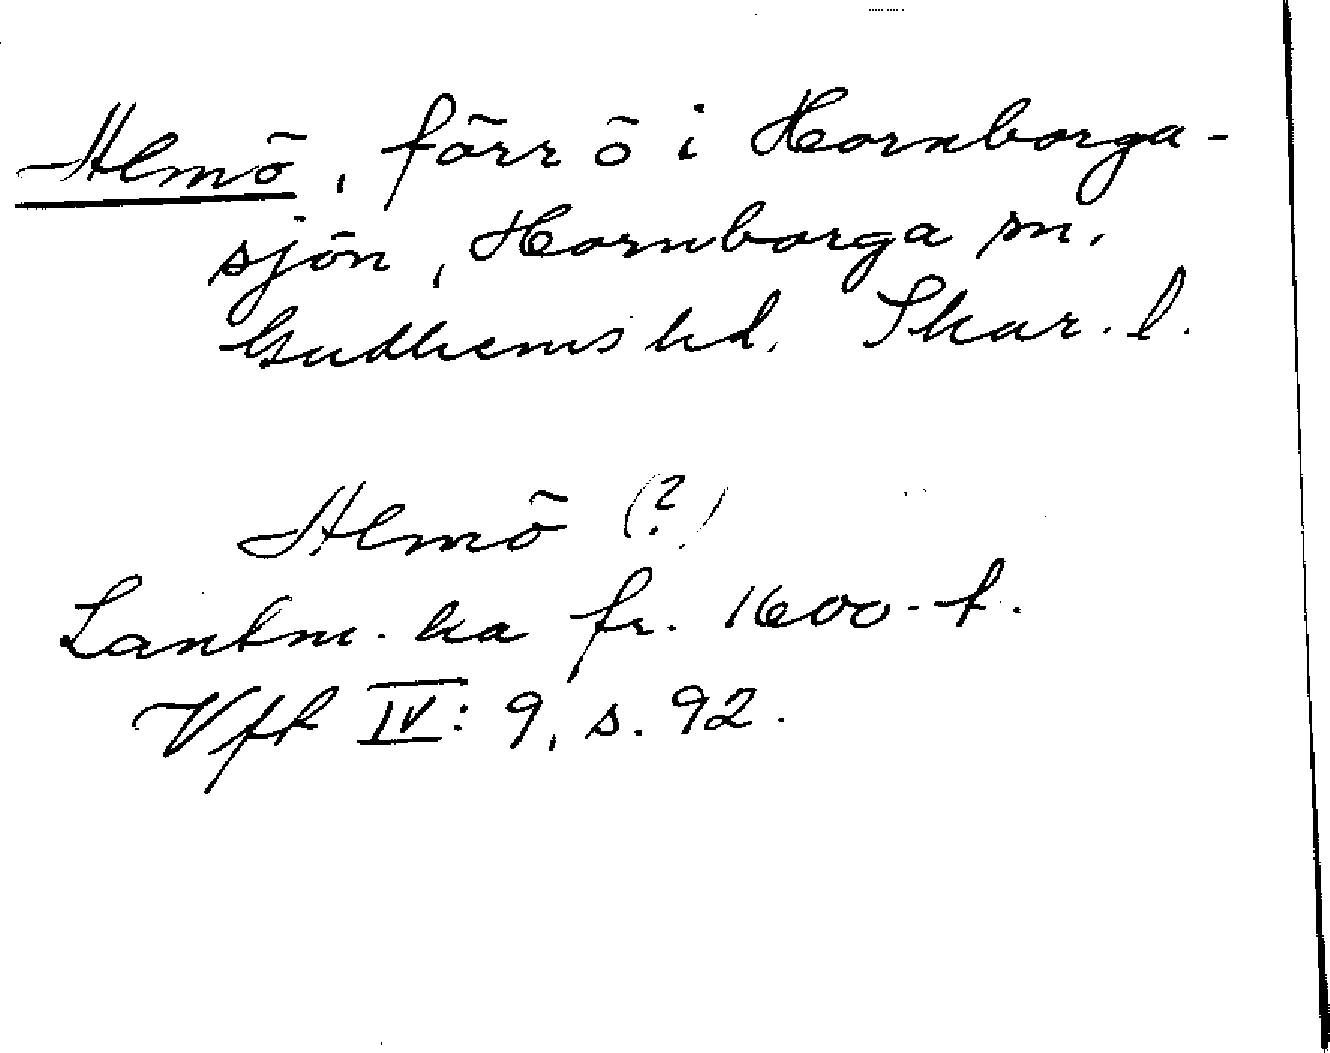 Almö, förr ö i Hornborga-
sjön, Hornborga sn.
Gudhems hd. Skar. l.
Almö (?)
Lantm. ka fr. 1600-t.
Vft IV: 9, s. 92.